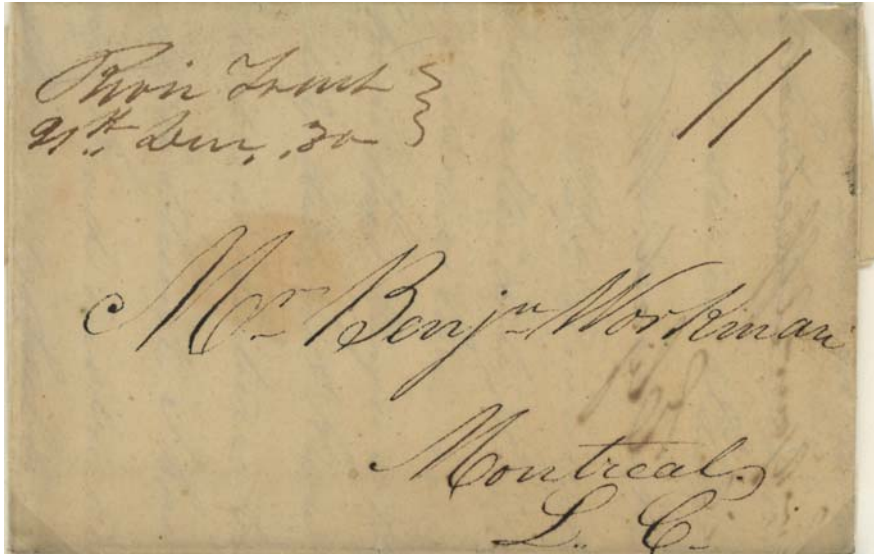 River Trent
Decr, 30
11
Mr Benjn Workman
Montreal
L. C.